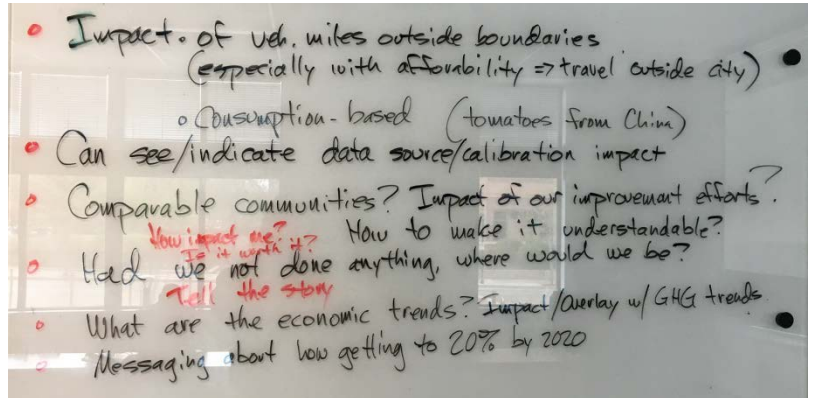 • Impact. of veh. miles outside boundaries
(especially with afforability => travel outside city)
o Consumption-based (tomatoes from China)
• Can see/indicate data source/calibration impact
• Comparable communities? Impact of our improvement efforts?
How impact me? How to make it understandable?
Is it worth it?
• Had we not done anything, where would we be?
Tell the story
• What are the economic trends? Impact/Overlay w/ GHG trends
• Messaging about how getting to 20% by 2020